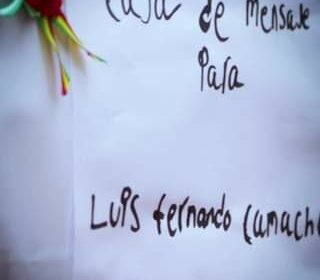 Casa de Mensaje
Para
Luis Fernando Camacho